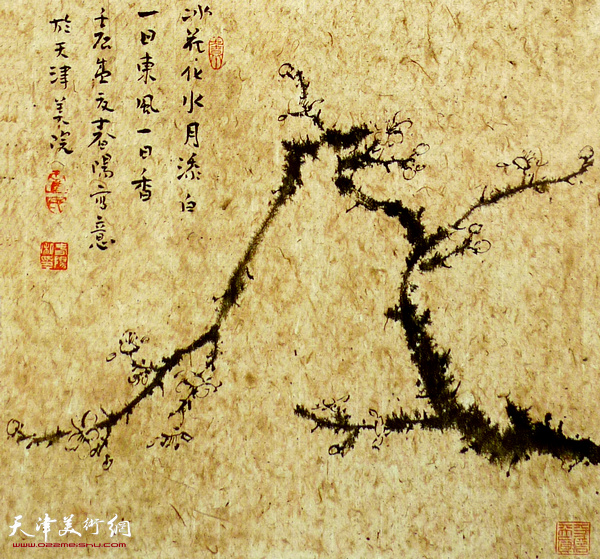 冰花化水月添白
一日東風一日香
壬辰盛夏春陽寫意
於天津美院
天津美術網
www.022meishu.com